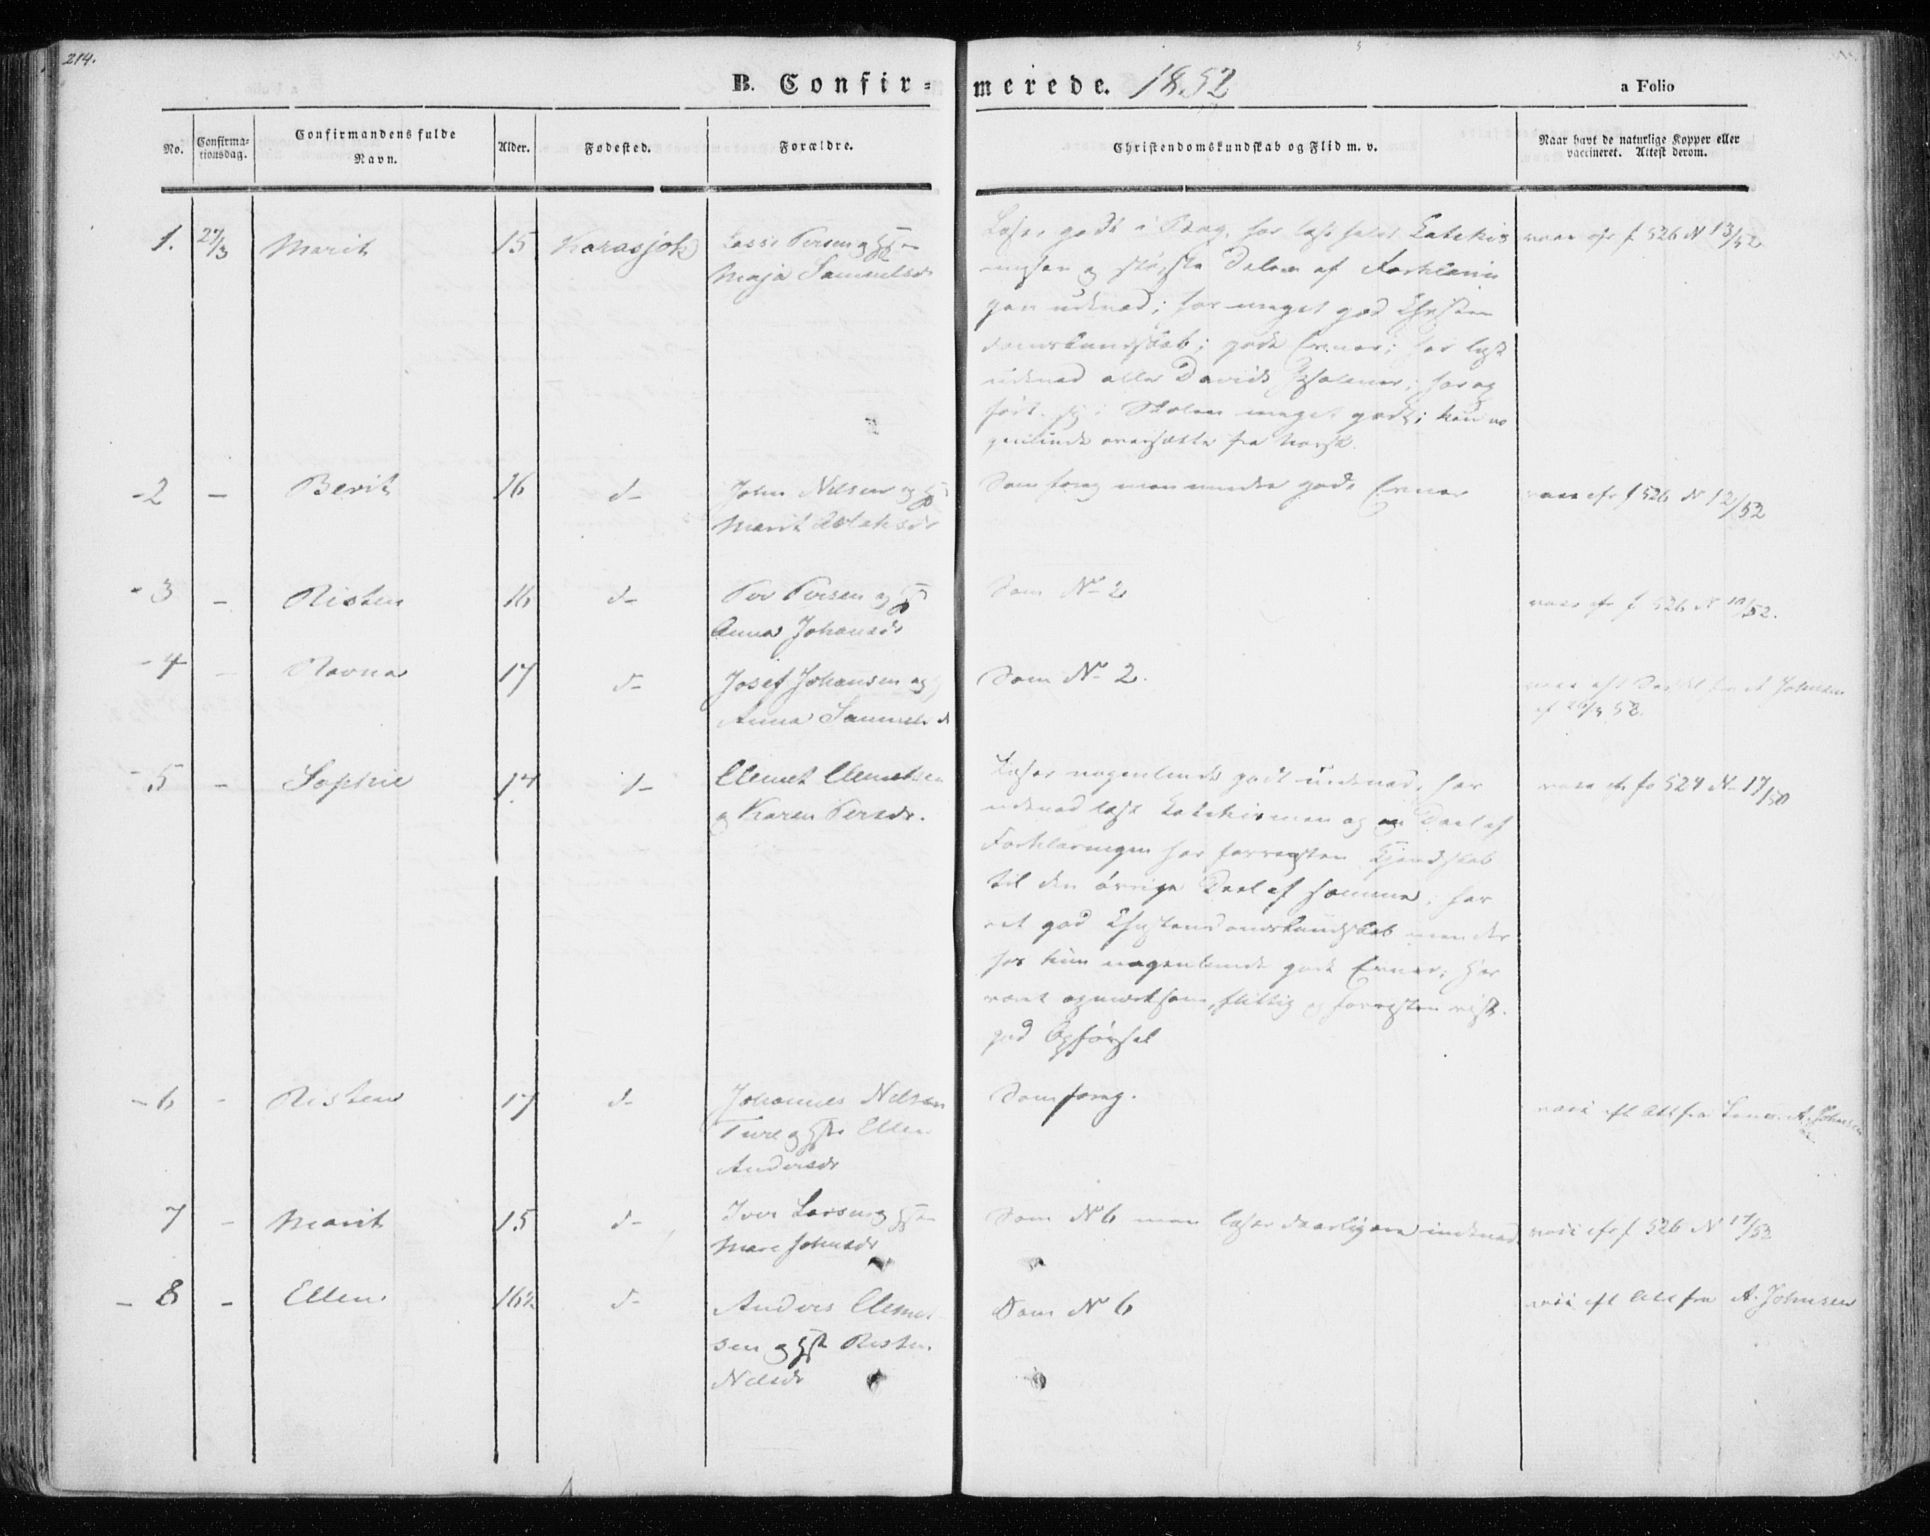 214.
B. Confir= merede. 1852
a Folio
No. Confirma-tionsdag. Confirmandens fulde Navn. Alder. Fødested. Forældre. Christendomskundskab og Flid m. v. Naar havt de naturlige Kopper eller vaccineret. Attest derom.
1. 27/3 Marit 15 Karasjok Lasse Persen og
Maja Samuelsdr
Læser godt i Bog, har læst hele Catekis
musen og største Delen af Forklarin
gen udenad; har meget god Christen
domskundskab; gode Evner; har læst
udenad alle Davids Psalmer; har op
ført sig i Skolen meget godt; kan no
genlunde oversætte fra Norsk.
f 526 N 13/52
2 - Berit 16 d- John Nilsen og
Marit
Som forrig men mindre gode Evner
f 526 N 12/52
3 - Risten 16 d- Per Persen og
Anna Johansdr
Som No 2
f 526 N 10/52.
4 - Ravna 17 d- Josef Johansen og
Anna Samuelsd
Som No 2.
A Johnsen
af 26/3 52.
5 - Sophie 17 d- Clemet Clemetsen
og Karen Persdr.
Læser nogenlunde godt indenad, har
udenad læst Catekismen og en Deel af
Forklaringen har forresten Kjendskab
til den øvrige Deel af samme; har
ret god Christendomskundskab men der
hos kun nogenlunde gode Evner; har
været opmærksom, flittig og forresten viist
god Opførsel
fo 524 N 17/50
6 - Risten 17 d- Johannes Nilsen
Ture og Hst Ellen
Andersdr
Som forrig.
A. Johnsen
7 - Marit 15 d- Iver Larsen og
Mare Johnsdr
Som No 6 men læser daarligere indenad
f 526 N 17/52
8 - Ellen 16½ d- Anders Clemet
sen og Hst Risten
Nilsdr
Som No 6
fra A. Johnsen